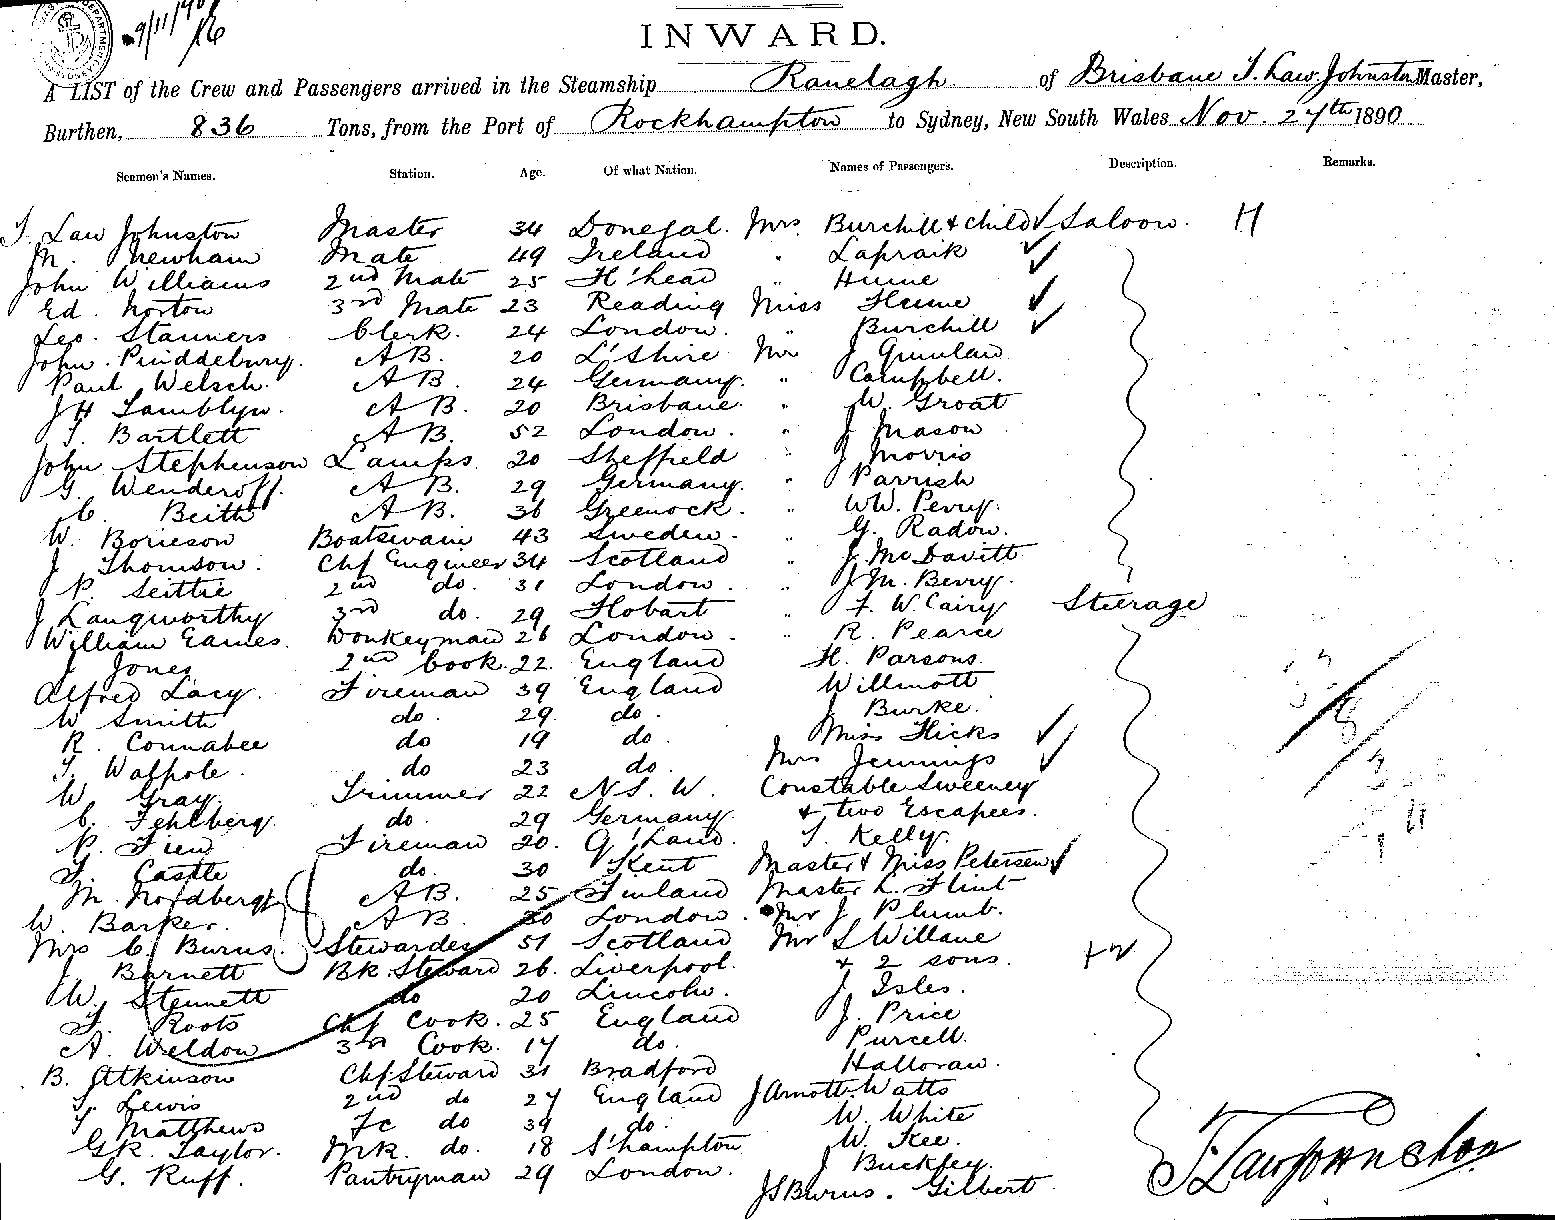 9/11/90
INWARD.
A LIST of the Crew and Passengers arrived in the Steamship Ranelagh of Brisbane T. Law. Johnston Master,
Burthen, 836 Tons, from the Port of Rockhampton to Sydney, New South Wales Nov. 27th 1890
Seamen's Names. Station. Age. Of what Nation. Names of Passengers. Description. Remarks.
T. Law Johnston Master 34 Donegal. Mrs. Burchill & child Saloon. H
M. Newham Mate 49 Ireland " Lapraik
John Williams 2nd Mate 25 H'head " Hume
Ed. Norton 3rd Mate 23 Reading Miss Hume
Geo. Stanners Clerk. 24 London. " Burchill
John. Pruddebury. AB. 20 L'Shire Mr J Quinlan
Paul Welsch. AB. 24 Germany. " Campbell.
JH Tamblyn. AB. 20 Brisbane. " W. Groat
T. Bartlett AB. 52 London. " J Mason
John Stephenson Lamps 20 Sheffield " J Morris
G. Wenderoff. AB. 29 Germany. " Parrish
C. Beith AB. 36 Greenock. " WW. Perry.
W. Borieson Boatswain 43 Sweden. " G. Radow.
J Thomson. Chf Engineer 34 Scotland " J. McDavitt
P. Seittie 2nd do. 31 London. " J M. Berry.
J Langworthy 3rd do. 29 Hobart " F. W. Cairy Steerage
William Eames. Donkeyman 26 London. " R. Pearce
J Jones 2nd Cook. 22. England H. Parsons.
Alfred Lacy. Fireman 39 England Willmott
W Smith do. 29. do. J Burke.
R. Connabee do 19 do. Miss Hicks
T. Walpole. do 23 do. Mrs Jennings
W. Gray. Trimmer 22 N.S.W. Constable Sweeney
C. Fehlberg. do. 29 Germany. & two Escapees.
P. Fien Fireman 20. Q'Land. T. Kelly.
T. Castle do. 30 Kent Master & Miss Petersen
M. Nordberg AB. 25 Finland Master L. Flint
W. Barker. AB. 30 London. Mr J. Plumb.
Mrs C. Burns. Stewardess 51 Scotland Mr S Willane
J. Barnett Bk. Steward 26. Liverpool. & 2 sons.
W. Stennett do 20 Lincoln. J. Isles.
T. Roots Chf Cook. 25 England J. Price
A. Weldon 3rd Cook. 17 do. Purcell
B. Atkinson Chf Steward 31 Bradford Halloran.
T. Lewis 2nd do 27 England J Arnott Watts
T Matthews Fc do 39 do. W. White
GR. Taylor. MR. do. 18 S'hampton W. Kee.
G. Ruff. Pantryman 29 London. J Buckley.
JS Burns. Gilbert
T Law Johnston